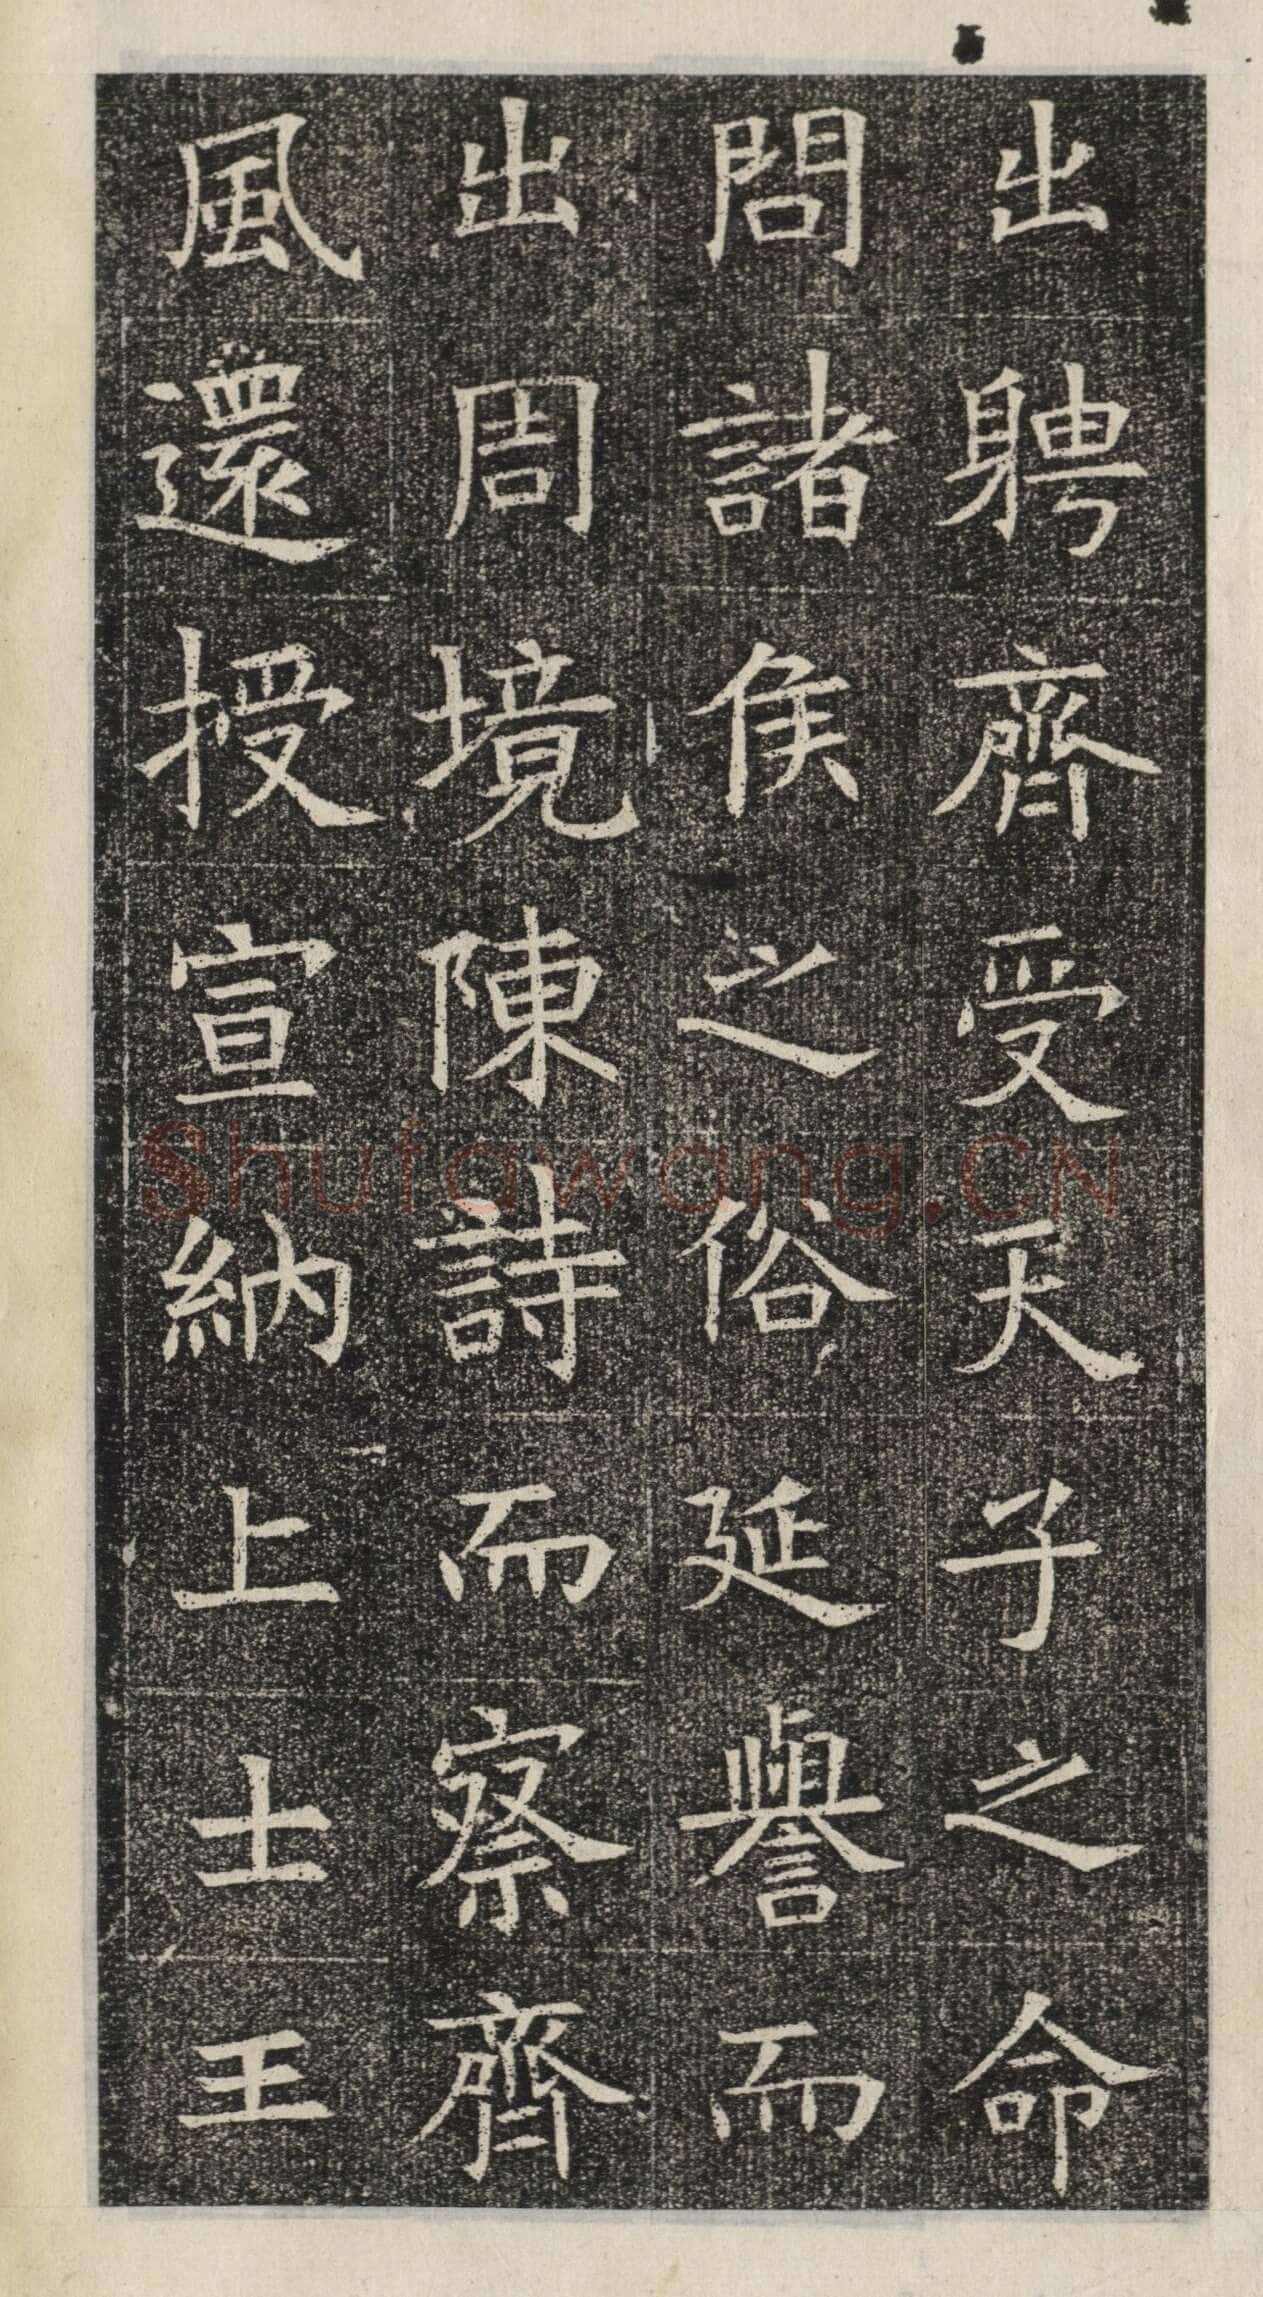 出聘齊受天子之命
問諸侯之俗延譽而
出周境陳詩而察齊
風還授宣納上士王
Shufawang.CN